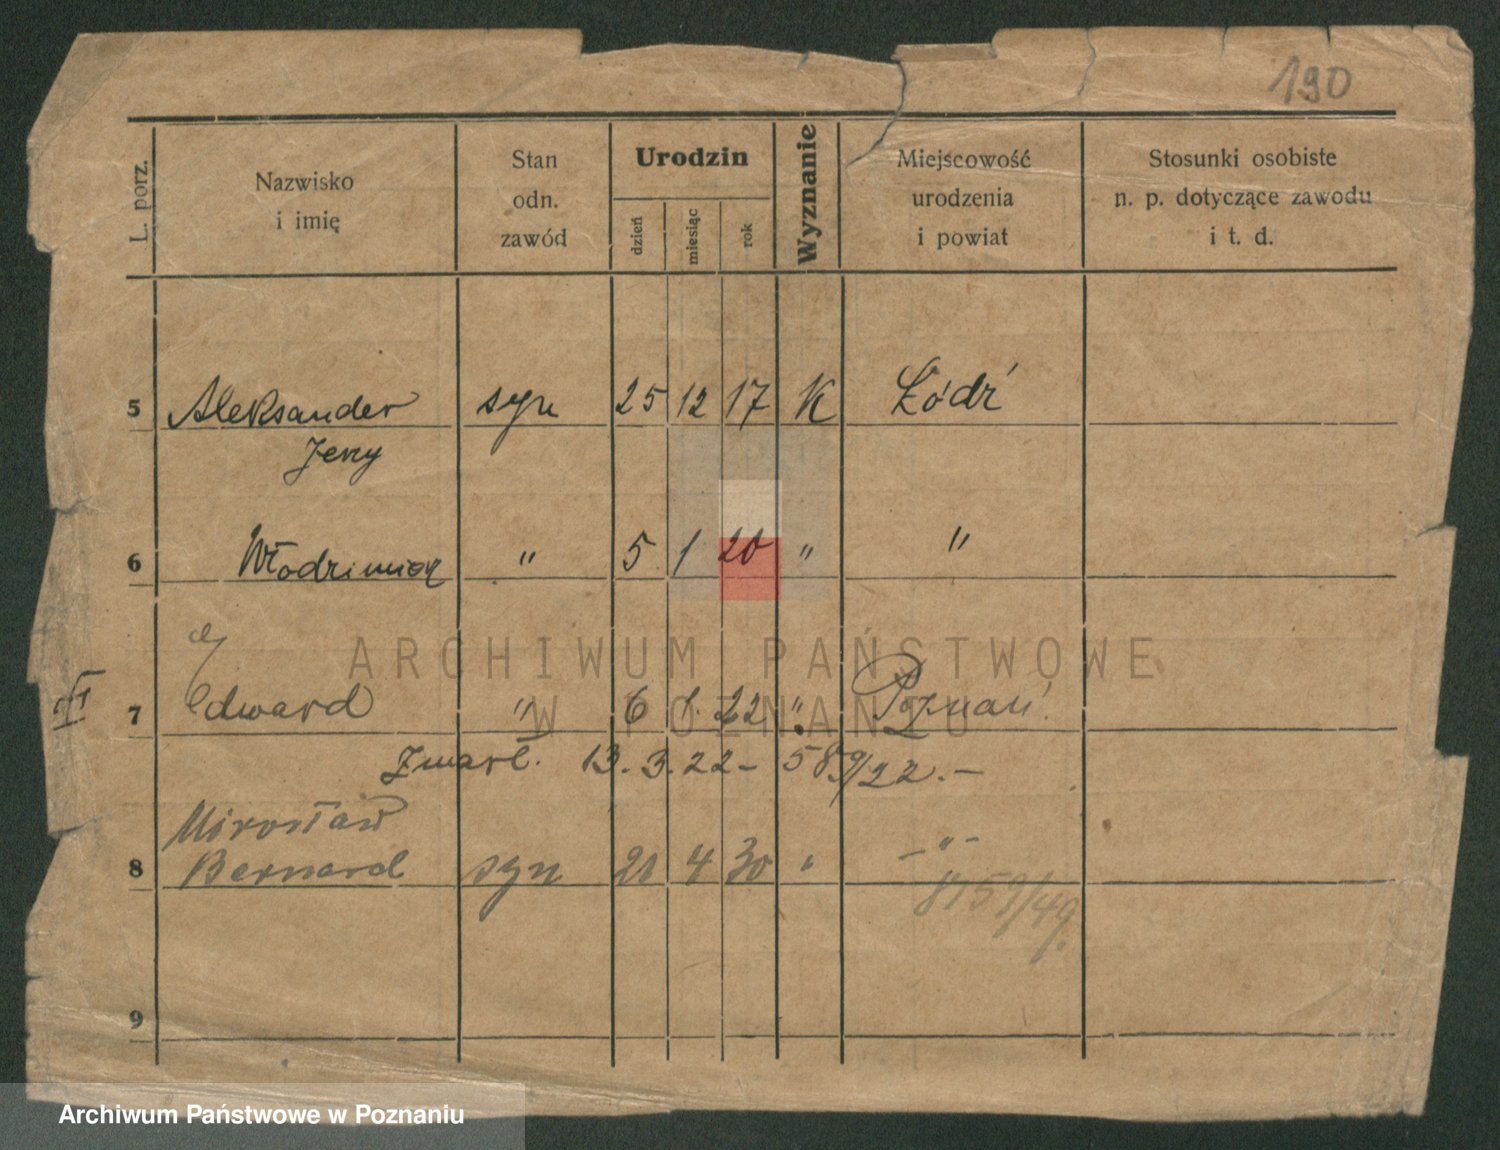 190
L. porz.
Nazwisko
i imię
Stan
odn.
zawód
Urodzin
dzień
miesiąc
rok
Wyznanie
Miejscowość
urodzenia
i powiat
Stosunki osobiste
n. p. dotyczące zawodu
i t. d.
5 Aleksander syn 25 12 17 K Łódź
Jerzy
6 Włodzimierz " 5 1 20 " "
ARCHIWUM PAŃSTWOWE
W POZNANIU
7 Edward " 6 1. 22 " Poznań.
Zmarł. 13. 3. 22 - 589/22. -
Mirosław
8 Bernard syn 21 4 30 " - " -
8159/49.
9
Archiwum Państwowe w Poznaniu